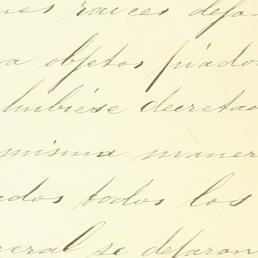 nes raices defa
a objetos piados
hubiése decretad
misma maner
ados todos los
neral se defaron